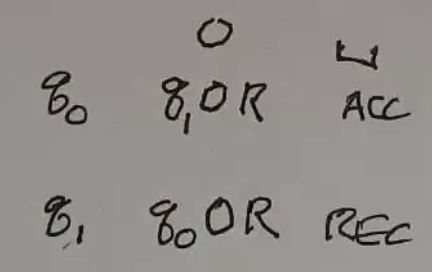 0 ⊔
q₀ q₁0R ACC
q₁ q₀0R REC